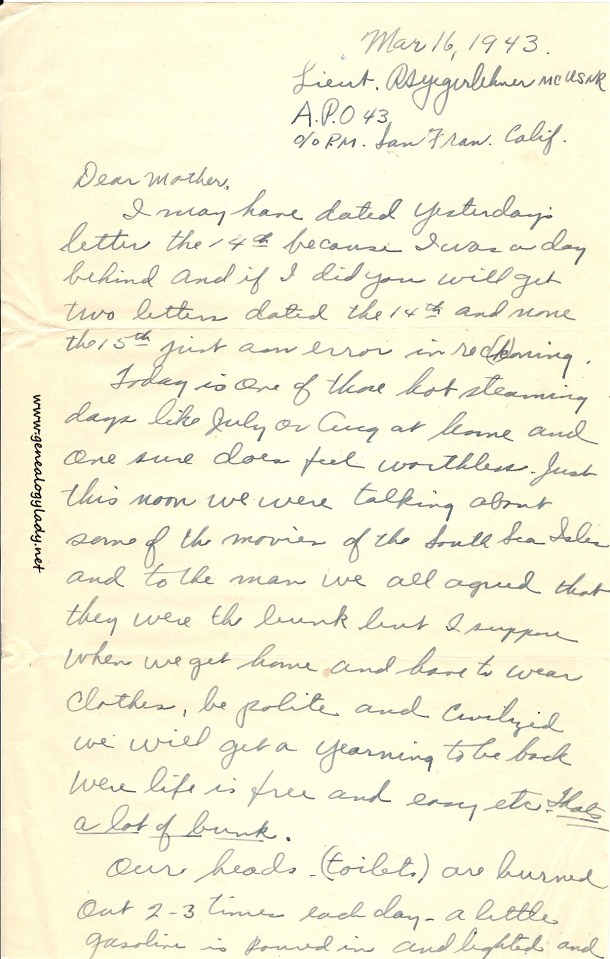 Mar 16, 1943.
Lieut. RSYegerlehner MC USNR
A.P.O 43
c/o P.M. San Fran. Calif.
Dear Mother,
I may have dated yesterdays
letter the 14th because I was a day
behind and if I did you will get
two letters dated the 14th and none
the 15th just an error in reckoning.
Today is one of those hot steaming
days like July or Aug at home and
one sure does feel worthless. Just
this noon we were talking about
some of the movies of the South Sea Isles
and to the man we all agreed that
they were the bunk but I suppose
when we get home and have to wear
clothes, be polite and civilized
we will get a yearning to be back
were life is free and easy etc. Thats
a lot of bunk.
Our heads - (toilets) are burned
out 2-3 times each day - a little
gasoline is poured in and lighted and
www.genealogylady.net